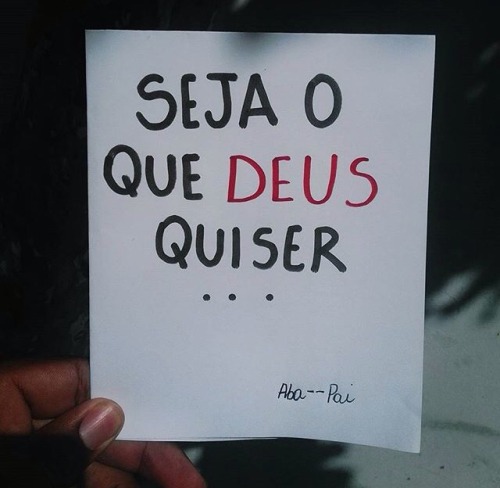 SEJA O
QUE DEUS
QUISER
...
Aba--Pai